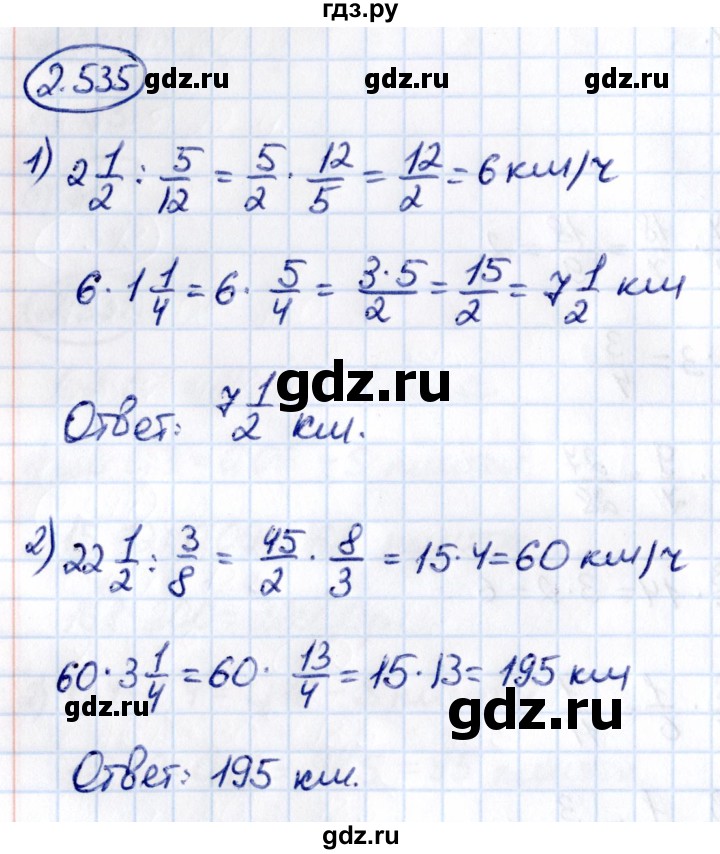 гдз.ру
2.535 gdz.ru gdz.ru gdz.ru
1) 2 1/2 : 5/12 = 5/2 · 12/5 = 12/2 = 6 км/ч
6 · 1 1/4 = 6 · 5/4 = 3·5/2 = 15/2 = 7 1/2 км
gdz.ru
Ответ: 7 1/2 км.
2) 22 1/2 : 3/8 = 45/2 · 8/3 = 15·4 = 60 км/ч
60 · 3 1/4 = 60 · 13/4 = 15·13 = 195 км
gdz.ru gdz.ru
Ответ: 195 км.
gdz.ru